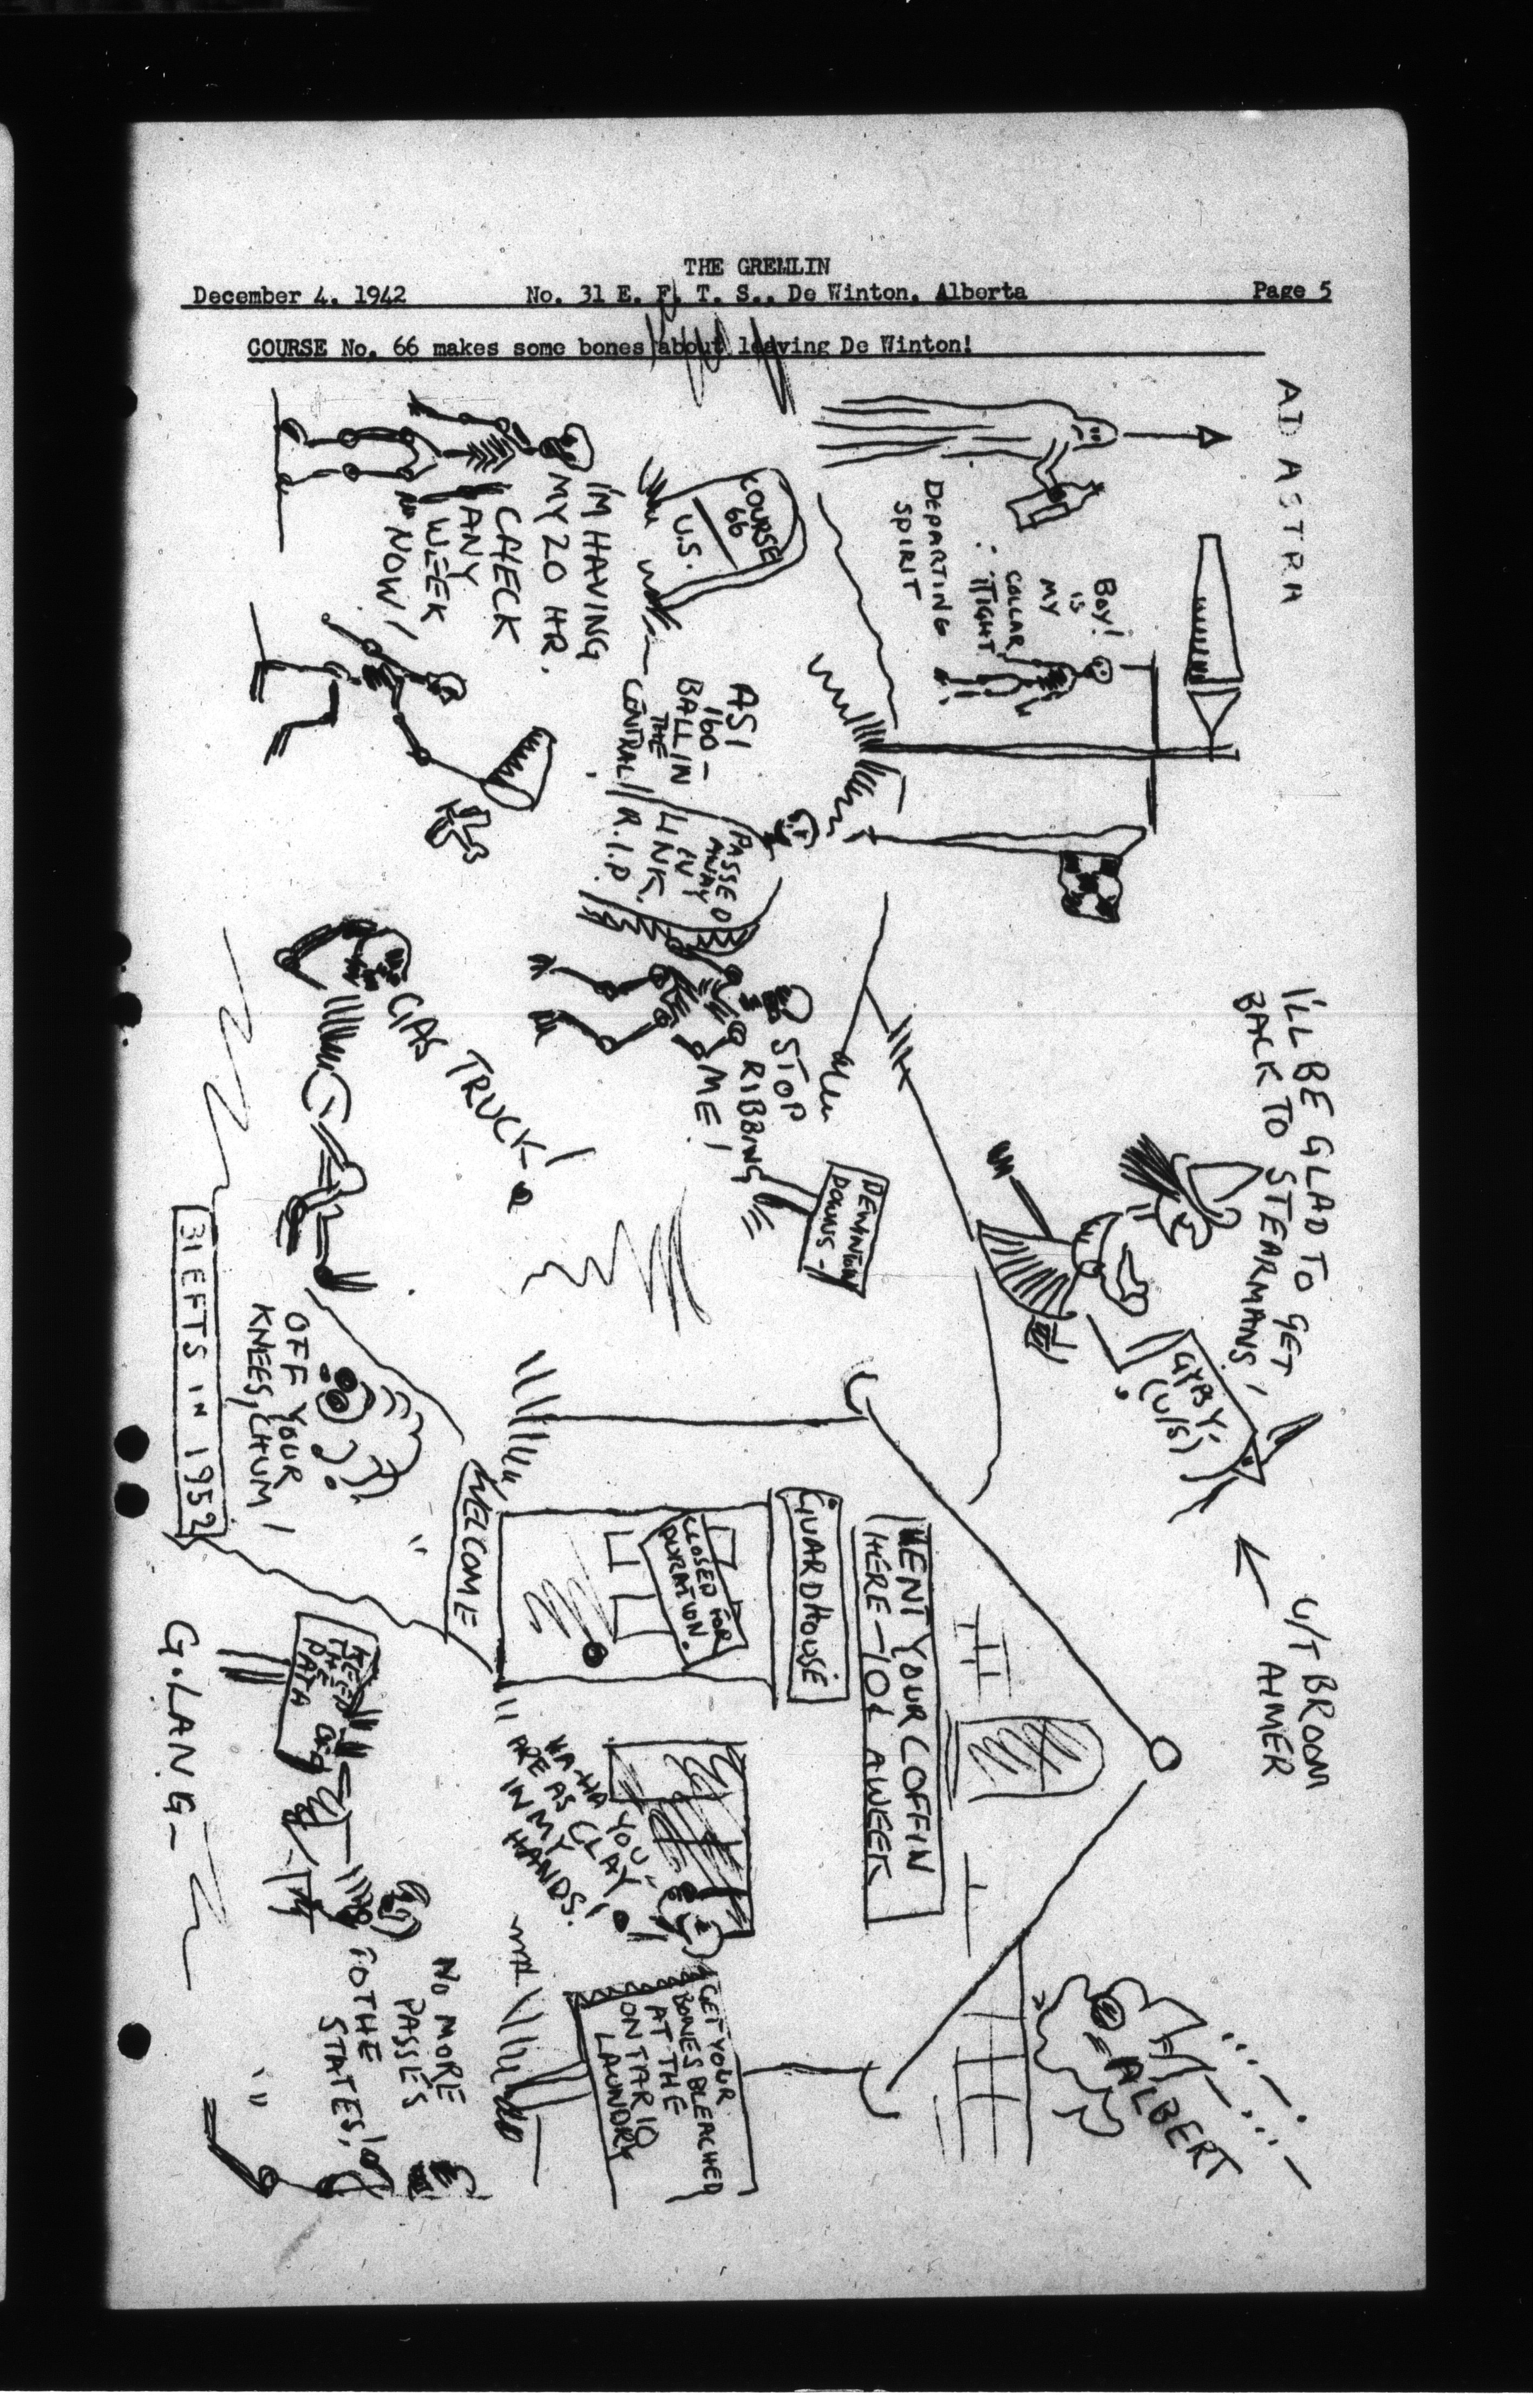 THE GREMLIN
December 4, 1942 No. 31 E. F. T. S., De Winton, Alberta Page 5
COURSE No. 66 makes some bones about leaving De Winton!
AD ASTRA
DEPARTING
SPIRIT
BOY!
IS
MY
COLLAR
TIGHT
COURSE
66
U.S.
I'M HAVING
MY 20 HR.
CHECK
ANY
WEEK
NOW!
ASI
160 -
BALL IN
THE
CENTRAL!
PASSED
AWAY
IN
LINK.
R.I.P.
STOP
RIBBING
ME!
GAS TRUCK!
DEWINTON
DOWNS -
I'LL BE GLAD TO GET
BACK TO STEARMANS!
GYPSY
(U/S)
U/T BROOM
AIMER
ALBERT
RENT YOUR COFFIN
HERE - 10¢ A WEEK
GUARDHOUSE
CLOSED FOR
DURATION.
WELCOME
HA-HA YOU
ARE AS CLAY
IN MY
HANDS!
GET YOUR
BONES BLEACHED
AT THE
ONTARIO
LAUNDRY
OFF YOUR
KNEES, CHUM!
31 EFTS IN 1952
KEEP
OFF
THE
NO MORE
PASSES
TO THE
STATES!
G. LANG -